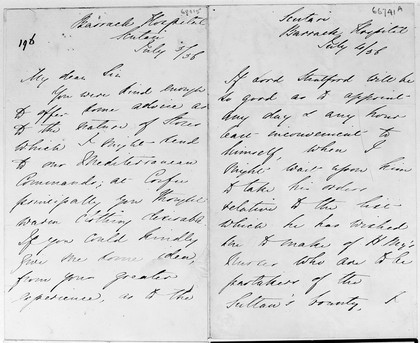 68915
Barrack Hospital
Scutari
July 3/56
196
My dear Sir
You were kind enough
to offer some advice as
to the nature of Stores
which I might send
to our Mediterranean
Commands; at Corfu
principally you thought
warm clothing desirable
If you could kindly
give me some idea,
from your greater
experience, as to the
65741A
Scutari
Barrack Hospital
July 4/56
If Lord Stratford will be
so good as to appoint
any day & any hour
least inconvenient to
himself, when I
might wait upon him
to take his orders
relative to the list
which he has wished
me to make of H. My's
Nurses who are to be
partakers of the
Sultan's bounty, I